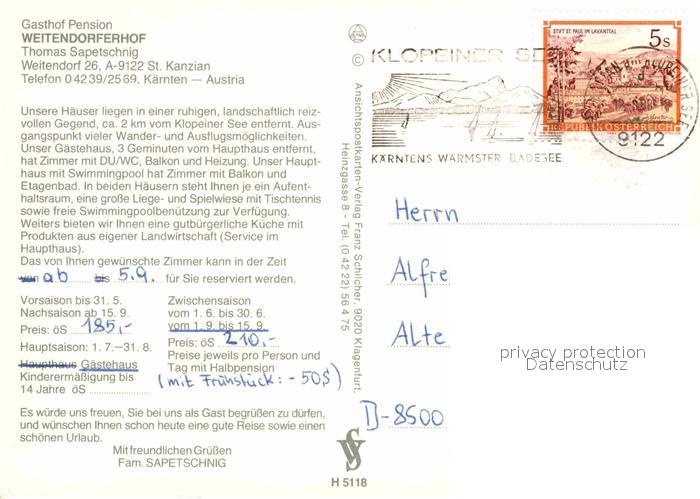 Gasthof Pension
WEITENDORFERHOF
Thomas Sapetschnig
Weitendorf 26, A-9122 St. Kanzian
Telefon 0 42 39/25 69. Kärnten — Austria
Unsere Häuser liegen in einer ruhigen, landschaftlich reiz-
vollen Gegend, ca. 2 km vom Klopeiner See entfernt. Aus-
gangspunkt vieler Wander- und Ausflugsmöglichkeiten.
Unser Gästehaus, 3 Geminuten vom Haupthaus entfernt,
hat Zimmer mit DU/WC, Balkon und Heizung. Unser Haupt-
haus mit Swimmingpool hat Zimmer mit Balkon und
Etagenbad. In beiden Häusern steht Ihnen je ein Aufent-
haltsraum, eine große Liege- und Spielwiese mit Tischtennis
sowie freie Swimmingpoolbenützung zur Verfügung.
Weiters bieten wir Ihnen eine gutbürgerliche Küche mit
Produkten aus eigener Landwirtschaft (Service im
Haupthaus).
Das von Ihnen gewünschte Zimmer kann in der Zeit
von ab bis 5.9. für Sie reserviert werden.
Vorsaison bis 31. 5.
Nachsaison ab 15. 9.
Preis: öS 185,-
Hauptsaison: 1. 7.—31. 8.
Haupthaus Gästehaus
Kinderermäßigung bis
14 Jahre öS
Zwischensaison
vom 1. 6. bis 30. 6.
vom 1. 9. bis 15. 9.
Preis: öS 210,-
Preise jeweils pro Person und
Tag mit Halbpension
(mit Frühstück: - 50S)
Es würde uns freuen, Sie bei uns als Gast begrüßen zu dürfen,
und wünschen Ihnen schon heute eine gute Reise sowie einen
schönen Urlaub.
Mit freundlichen Grüßen
Fam. SAPETSCHNIG
© Ansichtspostkarten-Verlag Franz Schilcher, 9020 Klagenfurt,
Heinzgasse 8 - Tel. (0 42 22) 56 4 75
H 5118
KLOPEINER SEE
KÄRNTENS WÄRMSTER BADESEE
STIFT ST. PAUL IM LAVANTTAL
5 S
REPUBLIK ÖSTERREICH
9122
Herrn
Alfre
Alte
D-8500
privacy protection
Datenschutz